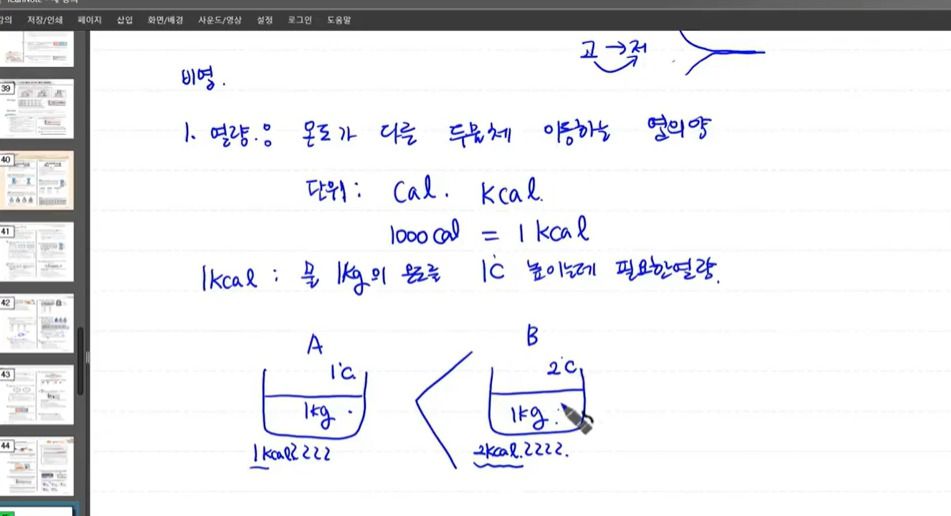 강의 저장/인쇄 페이지 삽입 화면/배경 사운드/영상 설정 로그인 도움말
고 → 저
비열.
1. 열량 : 온도가 다를 두물체 이동하는 열의양
단위 : Cal. Kcal.
1000 cal = 1 kcal
1kcal : 물 1kg의 온도를 1℃ 높이는데 필요한열량.
A
B
1℃
2℃
1kg.
1kg.
1kcal
2kcal.
39
40
41
42
43
44